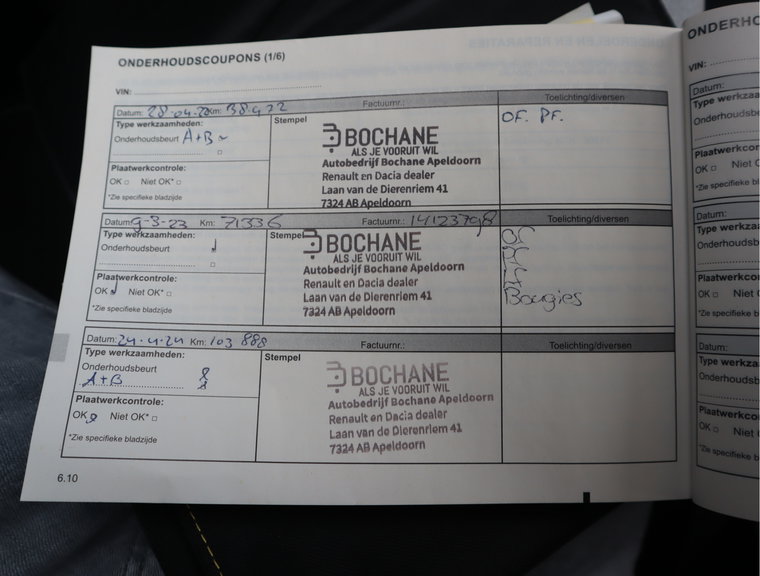 ONDERHOUDSCOUPONS (1/6)
VIN:
Datum: 28-04-22 Km: 38972 Factuurnr.: Toelichting/diversen
Type werkzaamheden: Stempel OF. PF.
Onderhoudsbeurt A+B
Plaatwerkcontrole:
OK □ Niet OK* □
*Zie specifieke bladzijde
BOCHANE
ALS JE VOORUIT WIL
Autobedrijf Bochane Apeldoorn
Renault en Dacia dealer
Laan van de Dierenriem 41
7324 AB Apeldoorn
Datum: 9-3-23 Km: 71336 Factuurnr.: 14123798 Toelichting/diversen
Type werkzaamheden: Stempel
Onderhoudsbeurt
Plaatwerkcontrole:
OK Niet OK* □
*Zie specifieke bladzijde
BOCHANE
ALS JE VOORUIT WIL
Autobedrijf Bochane Apeldoorn
Renault en Dacia dealer
Laan van de Dierenriem 41
7324 AB Apeldoorn
OF
PF
Bougies
Datum: 24-4-24 Km: 103 888 Factuurnr.: Toelichting/diversen
Type werkzaamheden: Stempel
Onderhoudsbeurt
A+B
Plaatwerkcontrole:
OK Niet OK* □
*Zie specifieke bladzijde
BOCHANE
ALS JE VOORUIT WIL
Autobedrijf Bochane Apeldoorn
Renault en Dacia dealer
Laan van de Dierenriem 41
7324 AB Apeldoorn
6.10
VIN:
Datum:
Type
OK □ Niet
*Zie specifieke
Datum:
Type
OK □ Niet
*Zie specifieke
Datum:
Type
OK □ Niet
*Zie specifieke